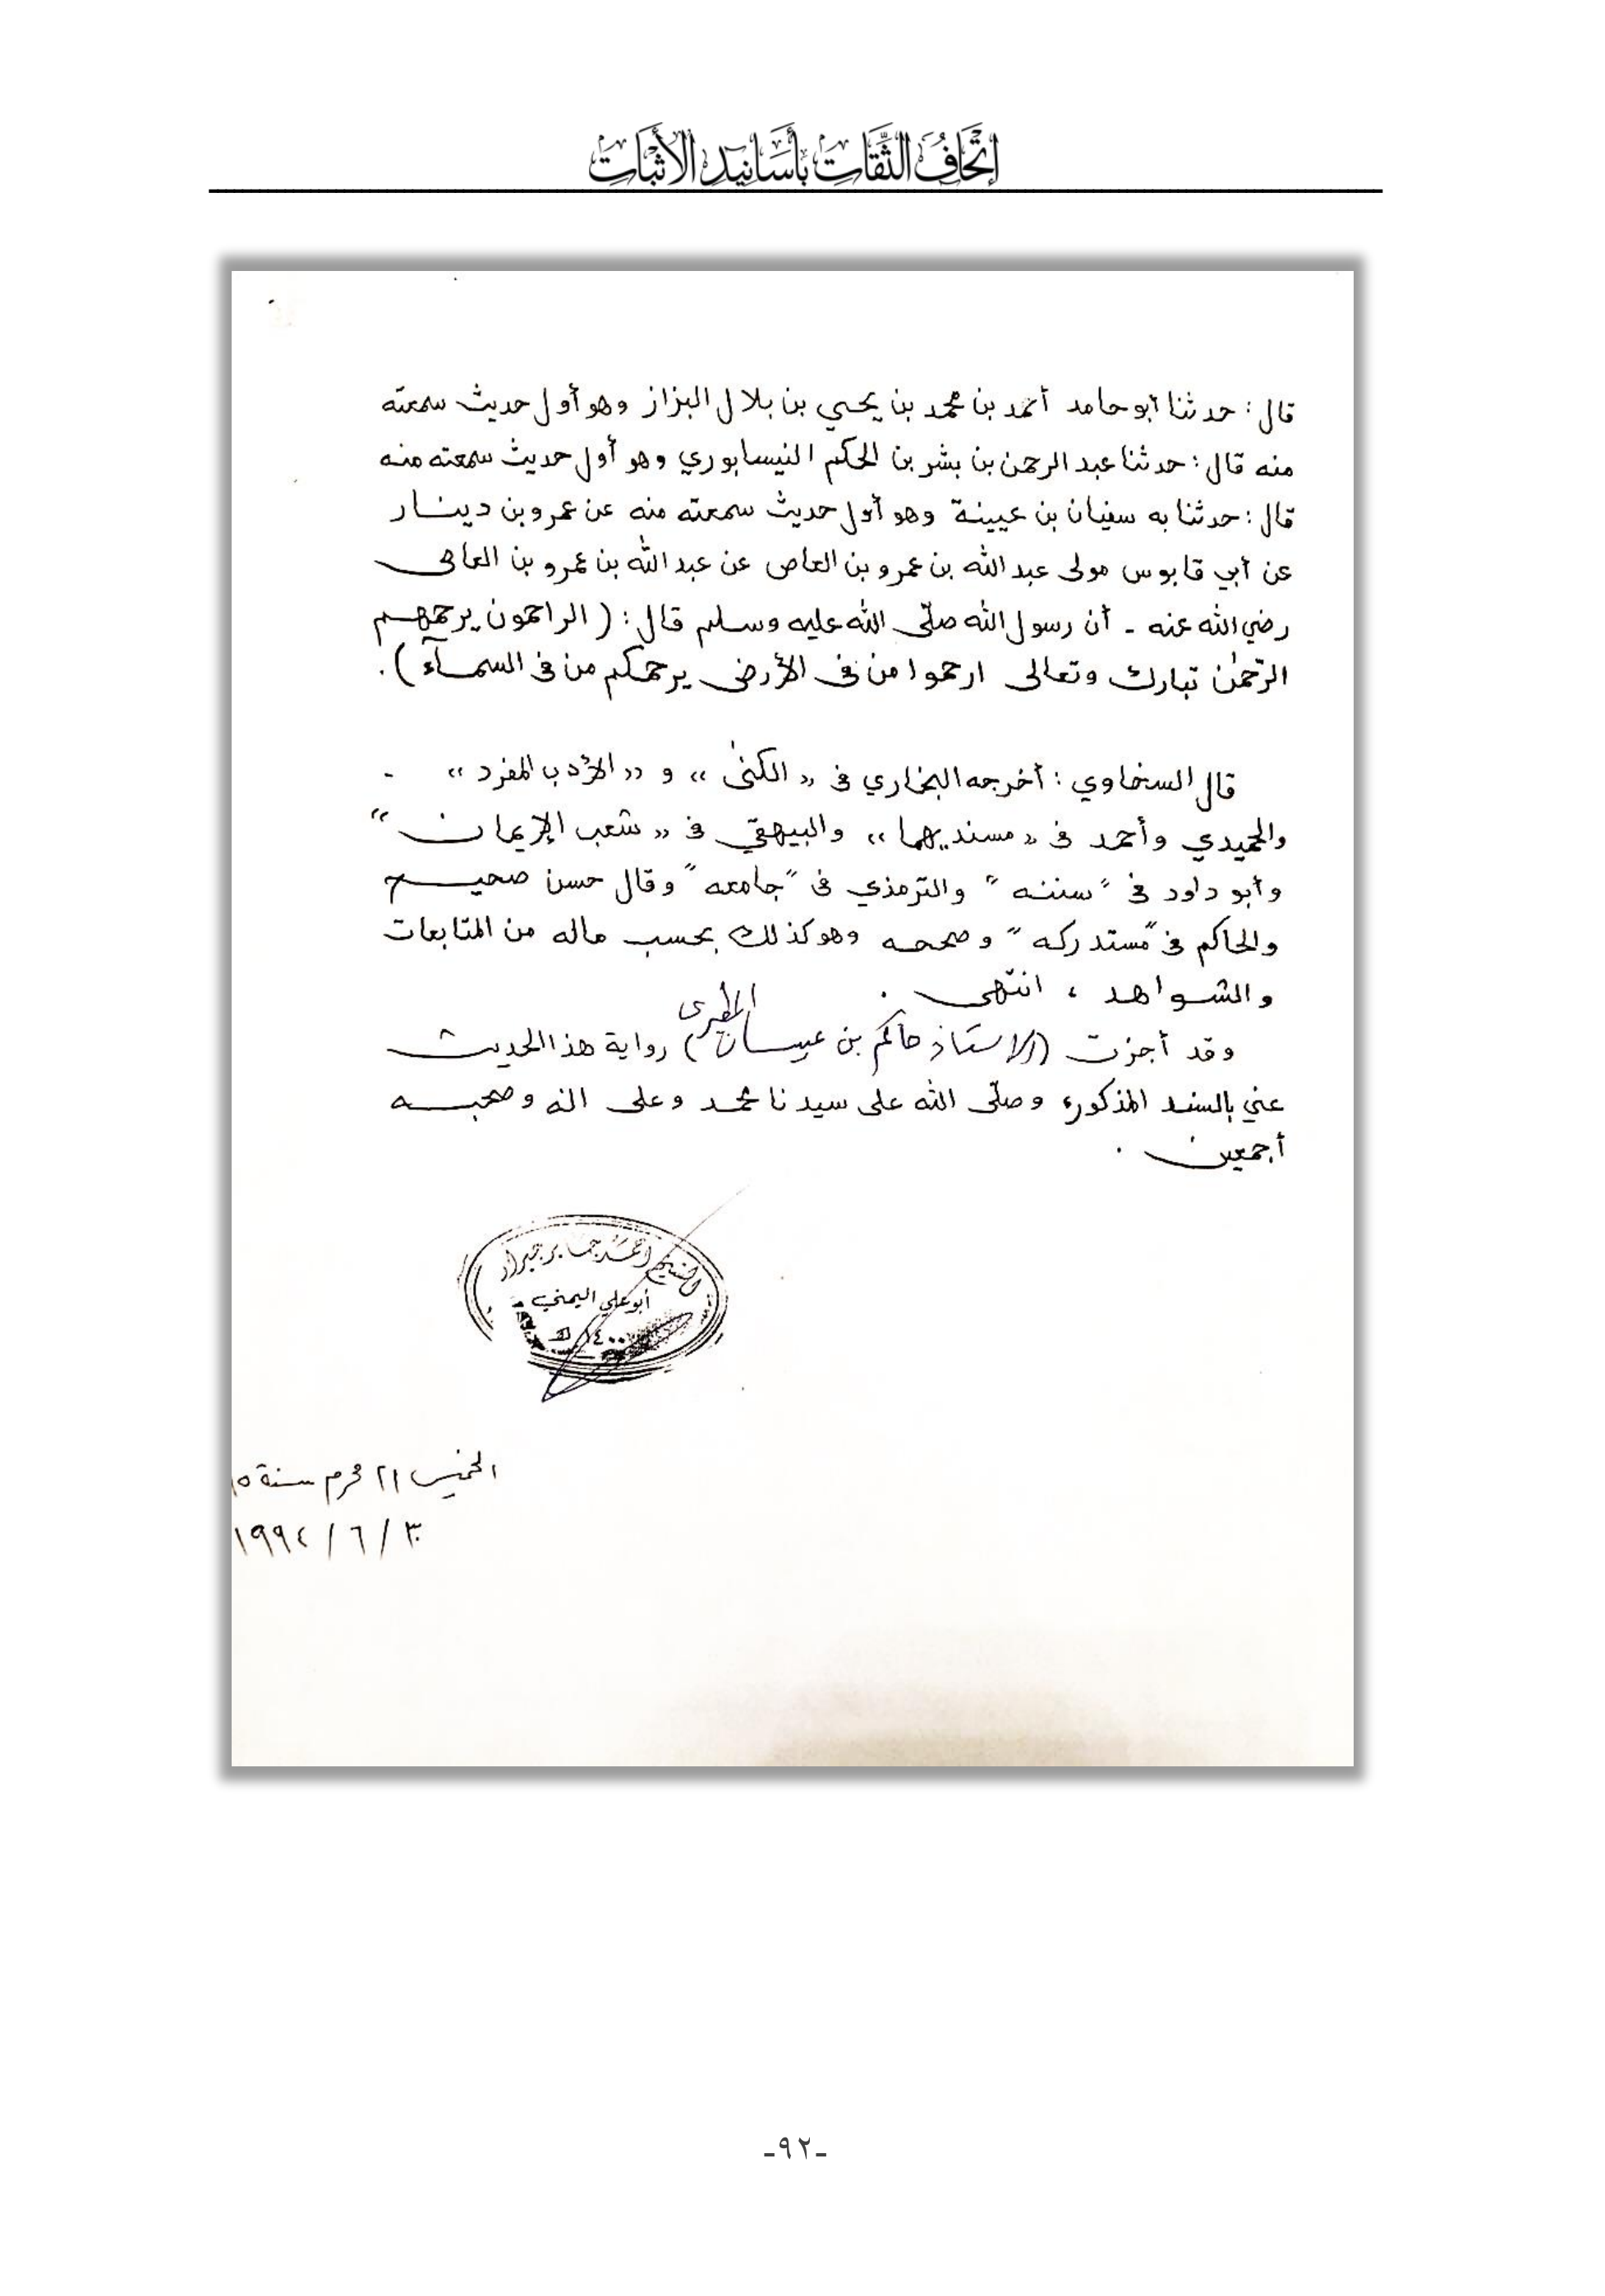 إِتْحَافُ الثِّقَاتِ بِأَسَانِيدِ الأَثْبَاتِ
قال: حدثنا أبو حامد أحمد بن محمد بن يحيى بن بلال البزاز وهو أول حديث سمعته
منه قال: حدثنا عبد الرحمن بن بشر بن الحكم النيسابوري وهو أول حديث سمعته منه
قال: حدثنا به سفيان بن عيينة وهو أول حديث سمعته منه عن عمرو بن دينار
عن أبي قابوس مولى عبد الله بن عمرو بن العاص عن عبد الله بن عمرو بن العاص
رضي الله عنه - أن رسول الله صلّى الله عليه وسلم قال: (الراحمون يرحمهم
الرّحمٰن تبارك وتعالى ارحموا من في الأرض يرحمكم من في السمآء).
قال السخاوي: أخرجه البخاري في «الكنىٰ» و «الأدب المفرد» -
والحميدي وأحمد في «مسنديهما» والبيهقي في «شعب الإيمان"
وأبو داود في "سننه" والترمذي في "جامعه" وقال حسن صحيح
والحاكم في "مستدركه" وصححه وهو كذلك بحسب ماله من المتابعات
والشواهد، انتهى.
وقد أجزت (الاستاذ حاكم بن عبيسان المطيرى) رواية هذا الحديث
عني بالسند المذكور، وصلّى الله على سيدنا محمد وعلى اله وصحبه
أجمعين.
أحمد جابر جبران
أبو علي اليمني
١٤٠٠ هـ
الخميس ٢١ محرم سنة ١٥
٣٠ / ٦ / ١٩٩٤
-٩٢-